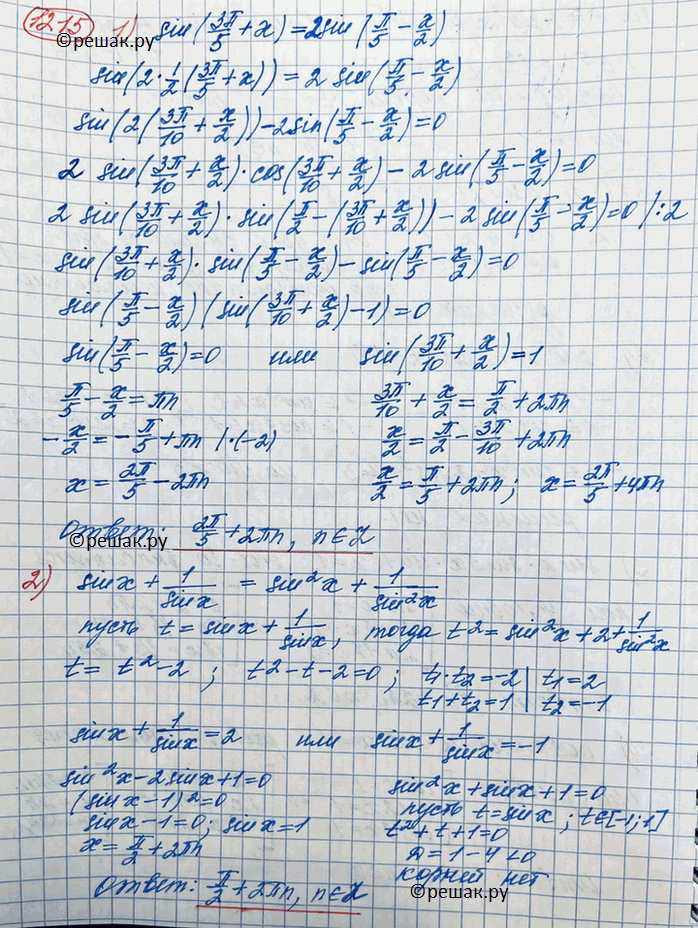 1215 1) sin(3π/5 + x) = 2sin(π/5 − x/2)
©решак.ру
sin(2·1/2(3π/5 + x)) = 2 sin(π/5 − x/2)
sin(2(3π/10 + x/2)) − 2sin(π/5 − x/2) = 0
2 sin(3π/10 + x/2)·cos(3π/10 + x/2) − 2 sin(π/5 − x/2) = 0
2 sin(3π/10 + x/2)·sin(π/2 − (3π/10 + x/2)) − 2 sin(π/5 − x/2) = 0 /:2
sin(3π/10 + x/2)·sin(π/5 − x/2) − sin(π/5 − x/2) = 0
sin(π/5 − x/2)(sin(3π/10 + x/2) − 1) = 0
sin(π/5 − x/2) = 0 или sin(3π/10 + x/2) = 1
π/5 − x/2 = πn 3π/10 + x/2 = π/2 + 2πn
−x/2 = −π/5 + πn /·(−2) x/2 = π/2 − 3π/10 + 2πn
x = 2π/5 − 2πn x/2 = π/5 + 2πn; x = 2π/5 + 4πn
Ответ: 2π/5 + 2πn, n∈Z
©решак.ру
2) sinx + 1/sinx = sin²x + 1/sin²x
пусть t = sinx + 1/sinx, тогда t² = sin²x + 2 + 1/sin²x
t = t² − 2; t² − t − 2 = 0; t₁·t₂ = −2 | t₁ = 2
t₁ + t₂ = 1 | t₂ = −1
sinx + 1/sinx = 2 или sinx + 1/sinx = −1
sin²x − 2sinx + 1 = 0 sin²x + sinx + 1 = 0
(sinx − 1)² = 0 пусть t = sinx; t∈[−1;1]
sinx − 1 = 0; sinx = 1 t² + t + 1 = 0
x = π/2 + 2πn D = 1 − 4 < 0
Ответ: π/2 + 2πn, n∈Z корней нет
©решак.ру